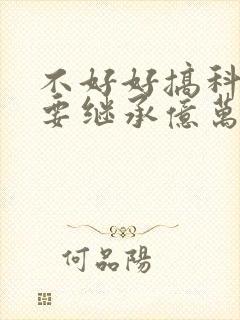 不好好搞科
要继承億萬
何品陽